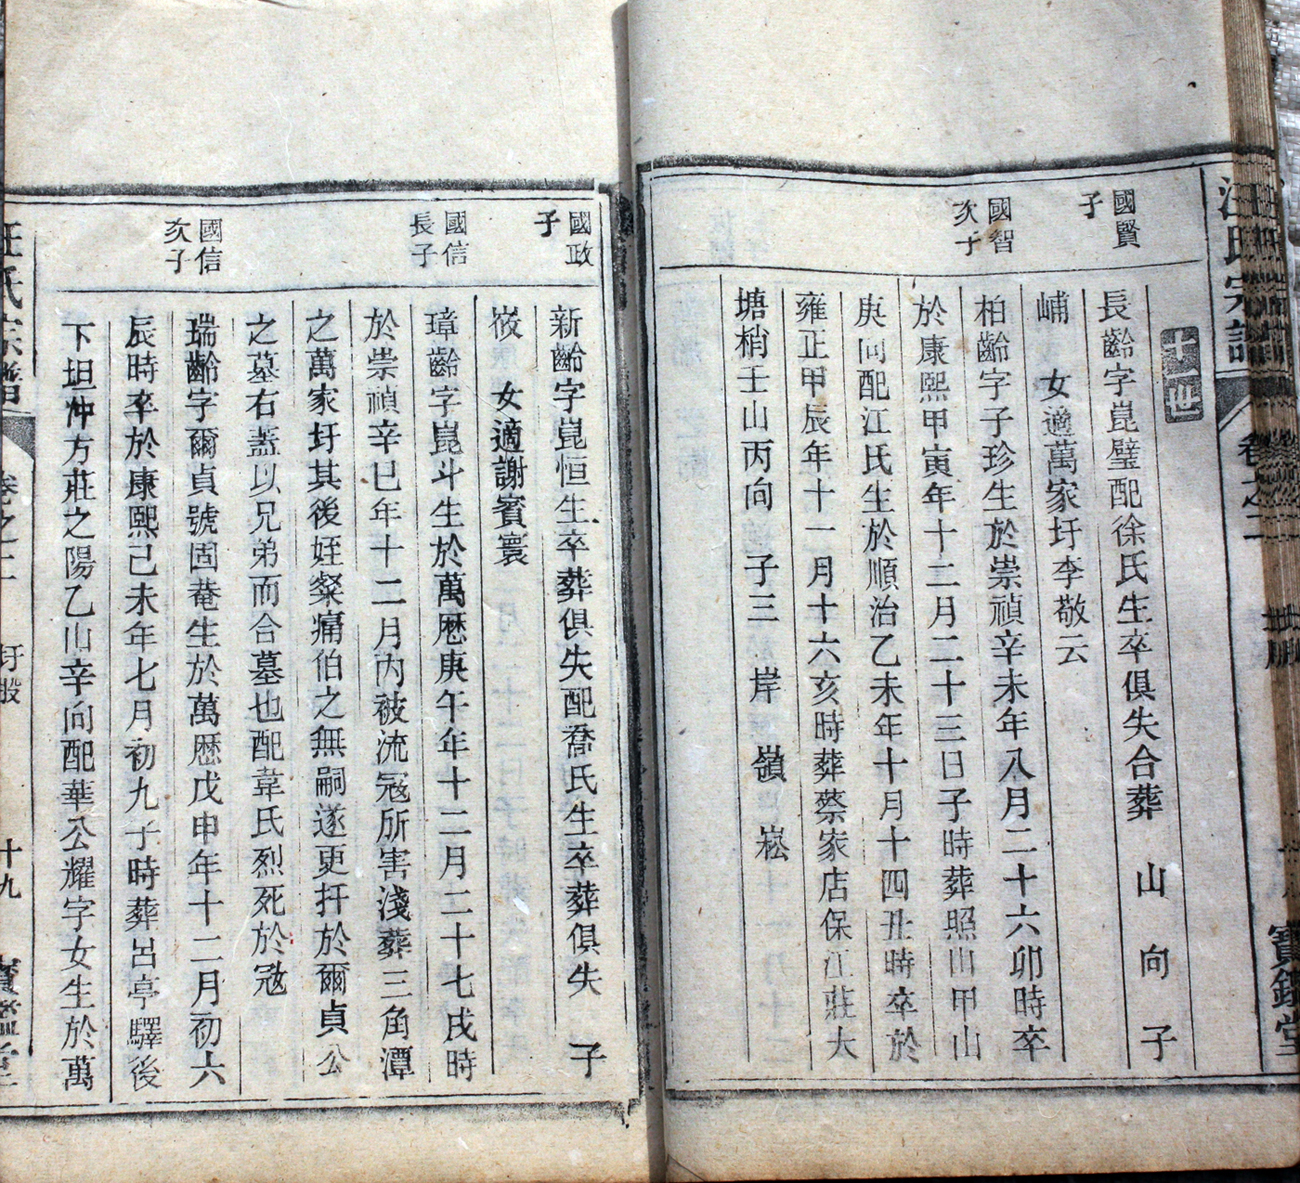 汪氏宗譜
卷之二
寶鑑堂
十一世
國賢
子
長齡字崑璧配徐氏生卒俱失合葬 山 向 子
峬 女適萬家圩李敬云
國智
次子
柏齡字子珍生於崇禎辛未年八月二十六卯時卒
於康熙甲寅年十二月二十三日子時葬照山甲山
庚向配江氏生於順治乙未年十月十四丑時卒於
雍正甲辰年十一月十六亥時葬蔡家店保江莊大
塘梢壬山丙向 子三 岸 嶺 崧
國政
子
新齡字崑恒生卒葬俱失配喬氏生卒葬俱失 子
峧 女適謝賓寰
國信
長子
璋齡字崑斗生於萬厯庚午年十二月二十七戌時
於崇禎辛巳年十二月內被流冦所害淺葬三角潭
之萬家圩其後姪粲痛伯之無嗣遂更扦於爾貞公
之墓右葢以兄弟而合墓也配韋氏烈死於冦
國信
次子
瑞齡字爾貞號固菴生於萬厯戊申年十二月初六
辰時卒於康熙己未年七月初九子時葬呂亭驛後
下坦冲方莊之陽乙山辛向配華公耀字女生於萬
汪氏宗譜
卷之二
圩股
十九
寶鑑堂